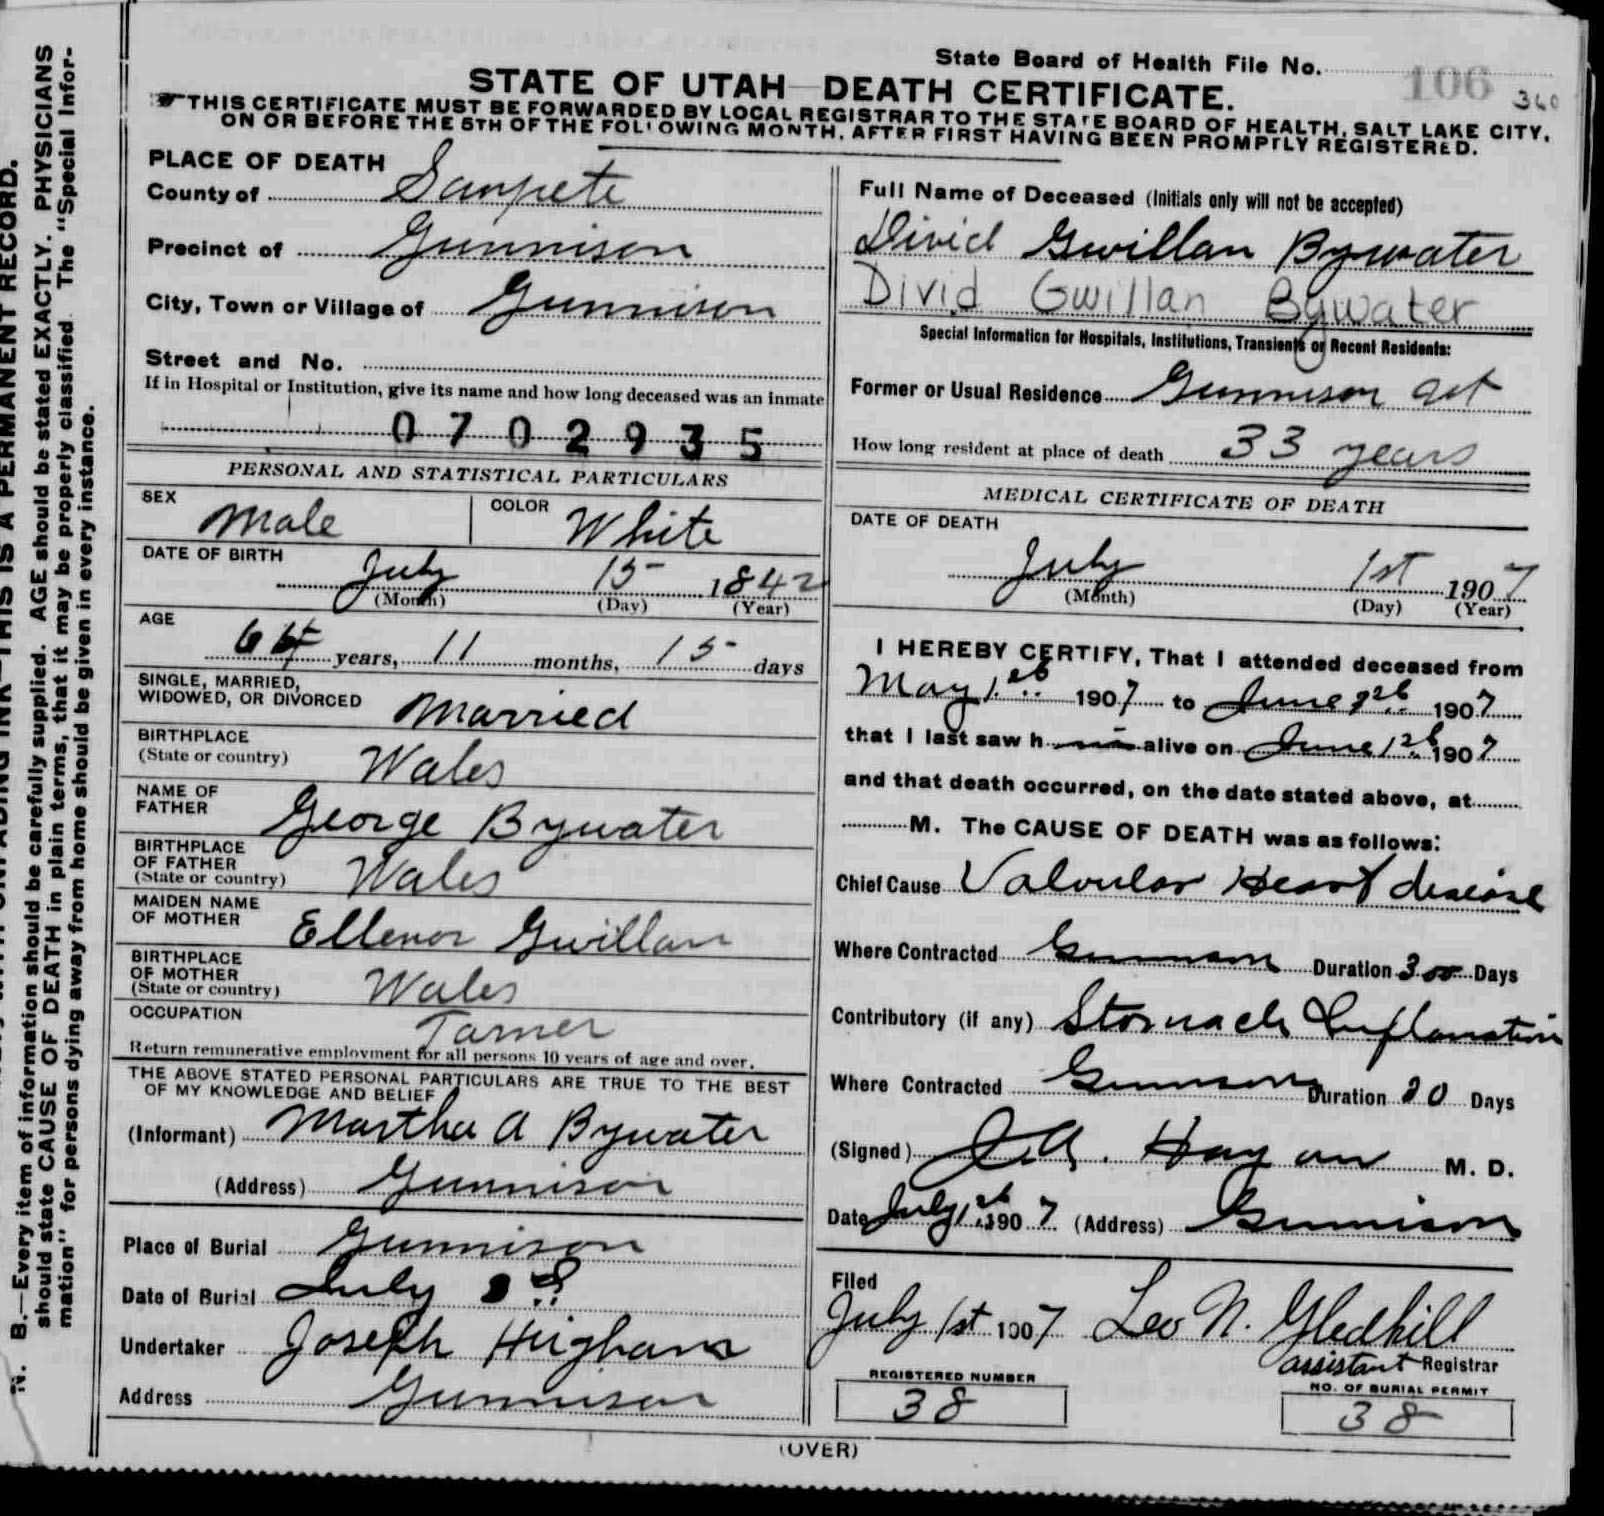 State Board of Health File No. 106 360
STATE OF UTAH—DEATH CERTIFICATE.
THIS CERTIFICATE MUST BE FORWARDED BY LOCAL REGISTRAR TO THE STATE BOARD OF HEALTH, SALT LAKE CITY,
ON OR BEFORE THE 5TH OF THE FOLLOWING MONTH, AFTER FIRST HAVING BEEN PROMPTLY REGISTERED.
PLACE OF DEATH
County of Sanpete
Precinct of Gunnison
City, Town or Village of Gunnison
Street and No.
If in Hospital or Institution, give its name and how long deceased was an inmate
0702935
PERSONAL AND STATISTICAL PARTICULARS
SEX Male COLOR White
DATE OF BIRTH
July 15 1842
(Month) (Day) (Year)
AGE
64 years, 11 months, 15 days
SINGLE, MARRIED,
WIDOWED, OR DIVORCED Married
BIRTHPLACE
(State or country) Wales
NAME OF
FATHER George Bywater
BIRTHPLACE
OF FATHER
(State or country) Wales
MAIDEN NAME
OF MOTHER Ellenor Gwillan
BIRTHPLACE
OF MOTHER
(State or country) Wales
OCCUPATION Tarner
Return remunerative employment for all persons 10 years of age and over.
THE ABOVE STATED PERSONAL PARTICULARS ARE TRUE TO THE BEST
OF MY KNOWLEDGE AND BELIEF
(Informant) Martha A Bywater
(Address) Gunnison
Place of Burial Gunnison
Date of Burial July
Undertaker Joseph Higham
Address Gunnison
Full Name of Deceased (Initials only will not be accepted)
Divid Gwillan Bywater
Divid Gwillan Bywater
Special Information for Hospitals, Institutions, Transients or Recent Residents:
Former or Usual Residence Gunnison
How long resident at place of death 33 years
MEDICAL CERTIFICATE OF DEATH
DATE OF DEATH
July 1st 1907
(Month) (Day) (Year)
I HEREBY CERTIFY, That I attended deceased from
May 1 1907 to June 1907
that I last saw h alive on June 1907
and that death occurred, on the date stated above, at
M. The CAUSE OF DEATH was as follows:
Chief Cause Valvular Heart disease
Where Contracted Gunnison Duration 300 Days
Contributory (if any) Stomach Inflamation
Where Contracted Gunnison Duration 20 Days
(Signed) Hagan M. D.
Date July 1 1907 (Address) Gunnison
Filed
July 1st 1907 Leo N. Gledhill
assistant Registrar
REGISTERED NUMBER NO. OF BURIAL PERMIT
38 38
(OVER)
THIS IS A PERMANENT RECORD.
N. B.—Every item of information should be carefully supplied. AGE should be stated EXACTLY. PHYSICIANS
should state CAUSE OF DEATH in plain terms, that it may be properly classified. The "Special Infor-
mation" for persons dying away from home should be given in every instance.